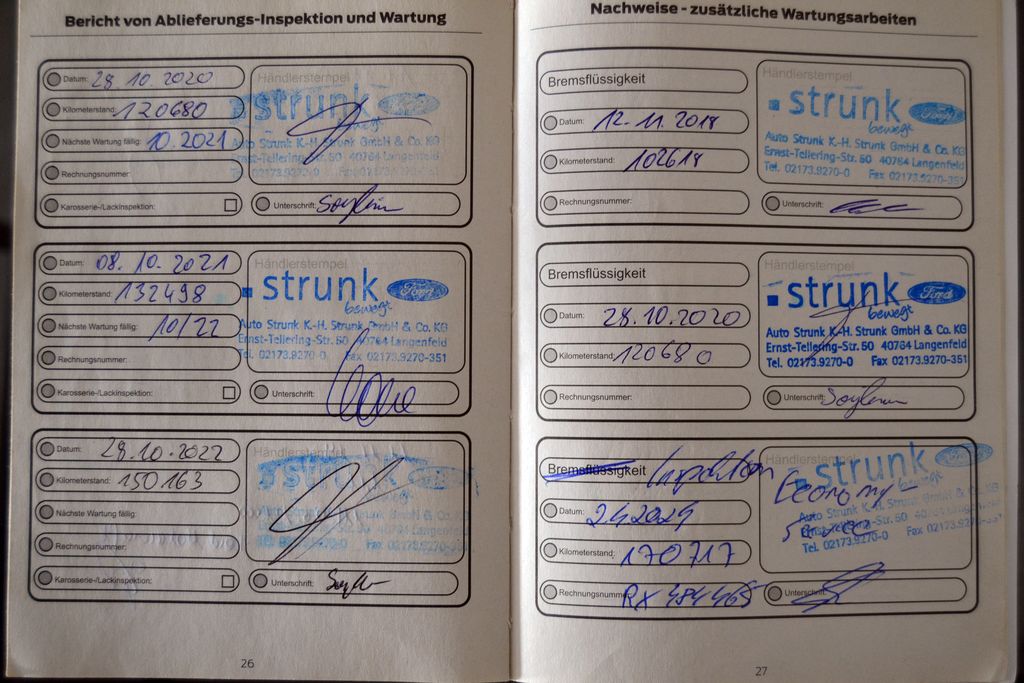 Bericht von Ablieferungs-Inspektion und Wartung
Datum: 28.10.2020
Kilometerstand: 120680
Nächste Wartung fällig: 10.2021
Rechnungsnummer:
Karosserie-/Lackinspektion:
Händlerstempel
strunk Ford
bewegt
Auto Strunk K.-H. Strunk GmbH & Co. KG
Ernst-Tellering-Str. 50 40764 Langenfeld
Tel. 02173.9270-0 Fax 02173.9270-351
Unterschrift:
Datum: 08.10.2021
Kilometerstand: 132498
Nächste Wartung fällig: 10/22
Rechnungsnummer:
Karosserie-/Lackinspektion:
Händlerstempel
strunk Ford
bewegt
Auto Strunk K.-H. Strunk GmbH & Co. KG
Ernst-Tellering-Str. 50 40764 Langenfeld
Tel. 02173.9270-0 Fax 02173.9270-351
Unterschrift:
Datum: 28.10.2022
Kilometerstand: 150163
Nächste Wartung fällig:
Rechnungsnummer:
Karosserie-/Lackinspektion:
Händlerstempel
strunk
40764 Langenfeld
02173.9270-0 Fax 02173.9270-351
Unterschrift:
26
Nachweise - zusätzliche Wartungsarbeiten
Bremsflüssigkeit
Datum: 12.11.2018
Kilometerstand: 102618
Rechnungsnummer:
Händlerstempel
strunk Ford
bewegt
Auto Strunk K.-H. Strunk GmbH & Co. KG
Ernst-Tellering-Str. 50 40764 Langenfeld
Tel. 02173.9270-0 Fax 02173.9270-351
Unterschrift:
Bremsflüssigkeit
Datum: 28.10.2020
Kilometerstand: 120680
Rechnungsnummer:
Händlerstempel
strunk Ford
bewegt
Auto Strunk K.-H. Strunk GmbH & Co. KG
Ernst-Tellering-Str. 50 40764 Langenfeld
Tel. 02173.9270-0 Fax 02173.9270-351
Unterschrift:
Bremsflüssigkeit Inspektion
Datum: 2.4.2024
Kilometerstand: 170717
Rechnungsnummer: RX 484465
Händlerstempel
Economy
strunk Ford
bewegt
Auto Strunk K.-H. Strunk GmbH & Co. KG
Ernst-Tellering-Str. 50 40764 Langenfeld
Tel. 02173.9270-0 Fax 02173.927
Unterschrift:
27